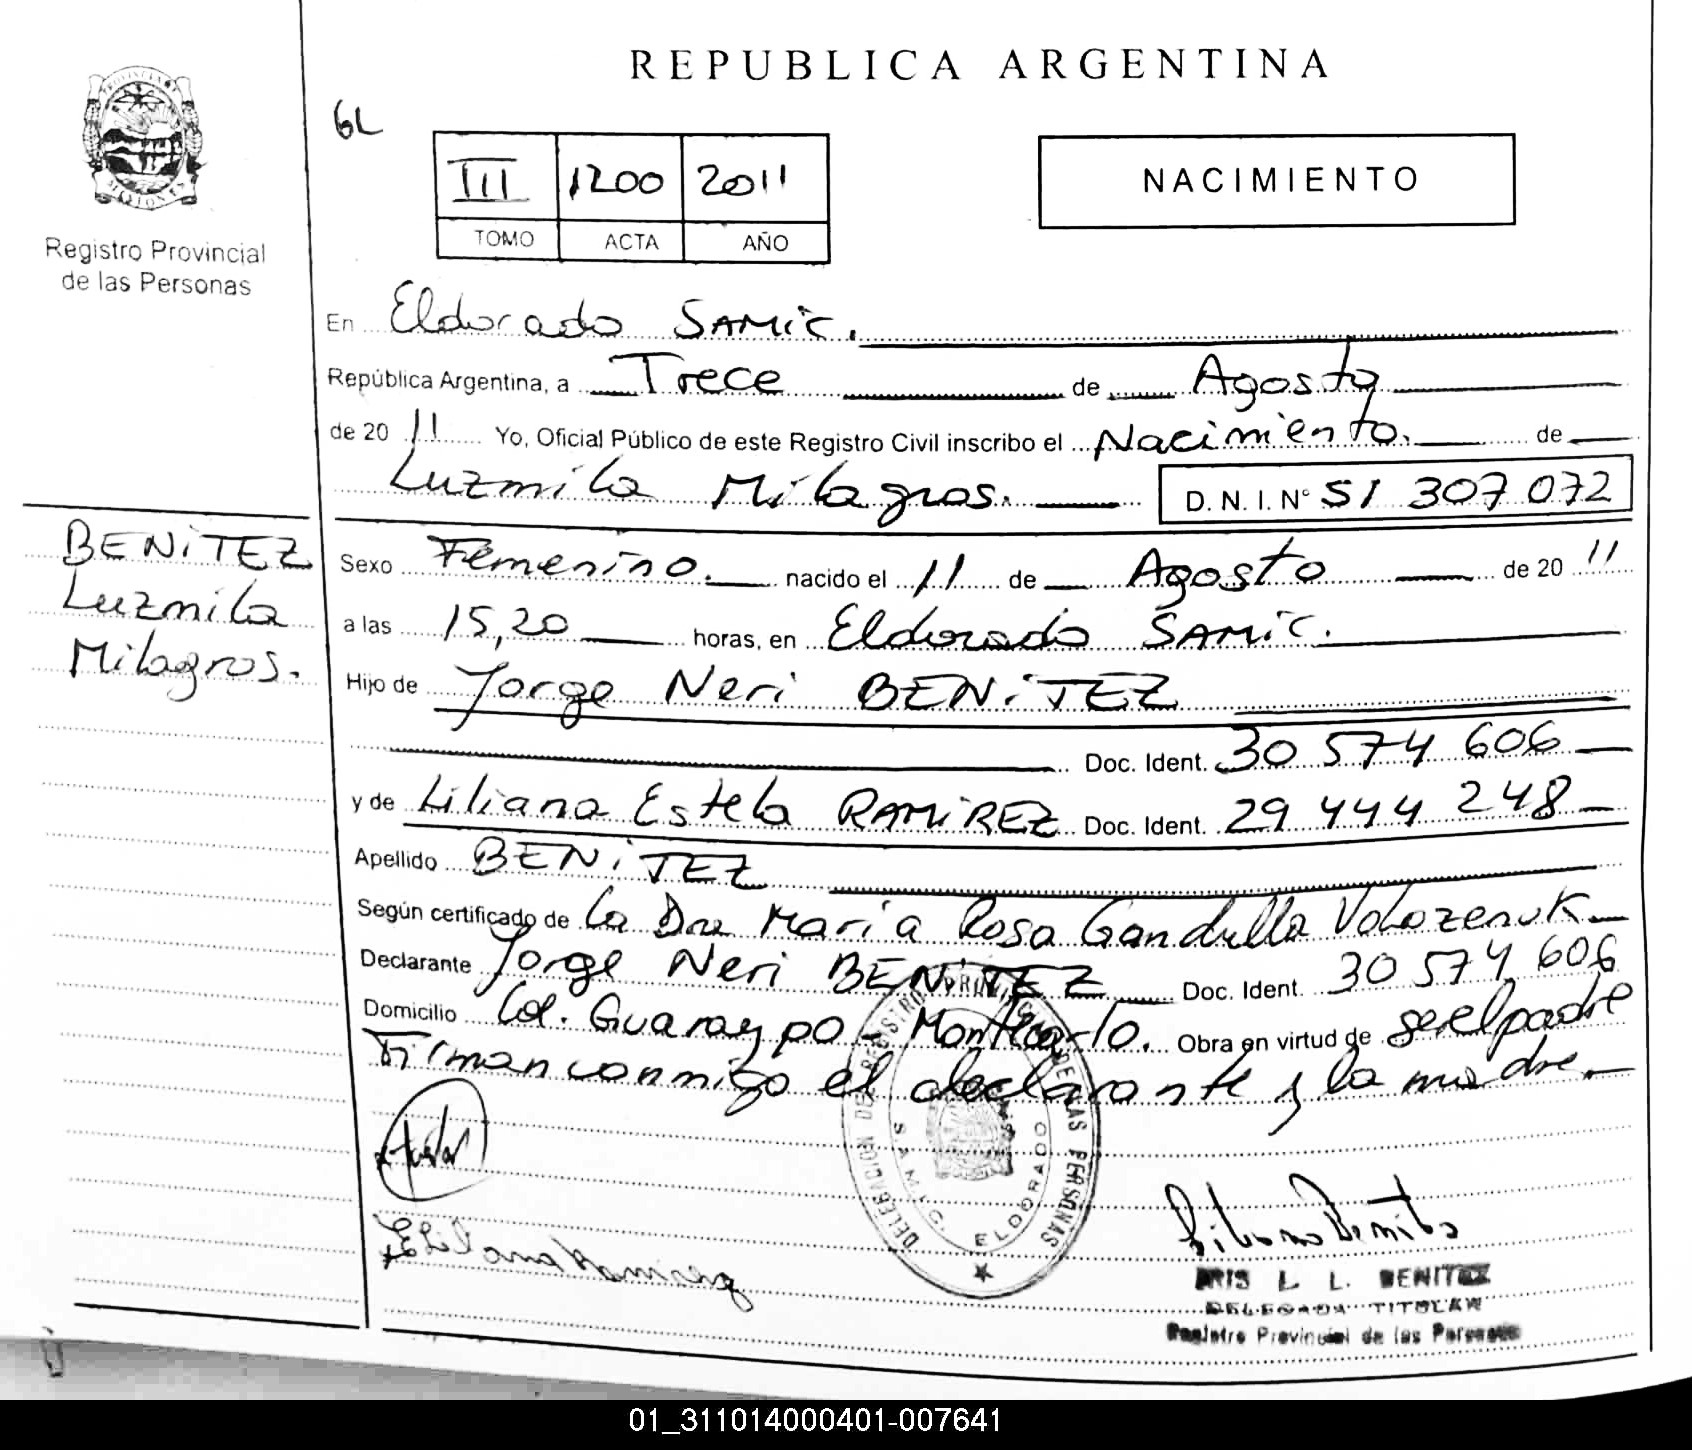 REPUBLICA ARGENTINA
PROVINCIA DE MISIONES
Registro Provincial
de las Personas
6L
III 1200 2011
TOMO ACTA AÑO
NACIMIENTO
En Eldorado SAMIC.
República Argentina, a Trece de Agosto
de 20 11 Yo, Oficial Público de este Registro Civil inscribo el Nacimiento. de
Luzmila Milagros. D. N. I. Nº 51 307 072
BENITEZ
Luzmila
Milagros.
Sexo Femenino. nacido el 11 de Agosto de 20 11
a las 15,20 horas, en Eldorado SAMIC.
Hijo de Jorge Neri BENITEZ
Doc. Ident. 30 574 606
y de Liliana Estela RAMIREZ Doc. Ident. 29 444 248
Apellido BENITEZ
Según certificado de la Dra Maria Rosa Gandulla
Declarante Jorge Neri BENITEZ Doc. Ident. 30 574 606
Domicilio Col. Guaraypo - Montecarlo. Obra en virtud de ser el padre
Firman conmigo el declarante y la madre.
DELEGACION DEL REGISTRO PROVINCIAL DE LAS PERSONAS
S.A.M.I.C. ELDORADO
Liliana Ramirez
IRIS L. L. BENITEZ
DELEGADA TITULAR
Registro Provincial de las Personas
01_311014000401-007641